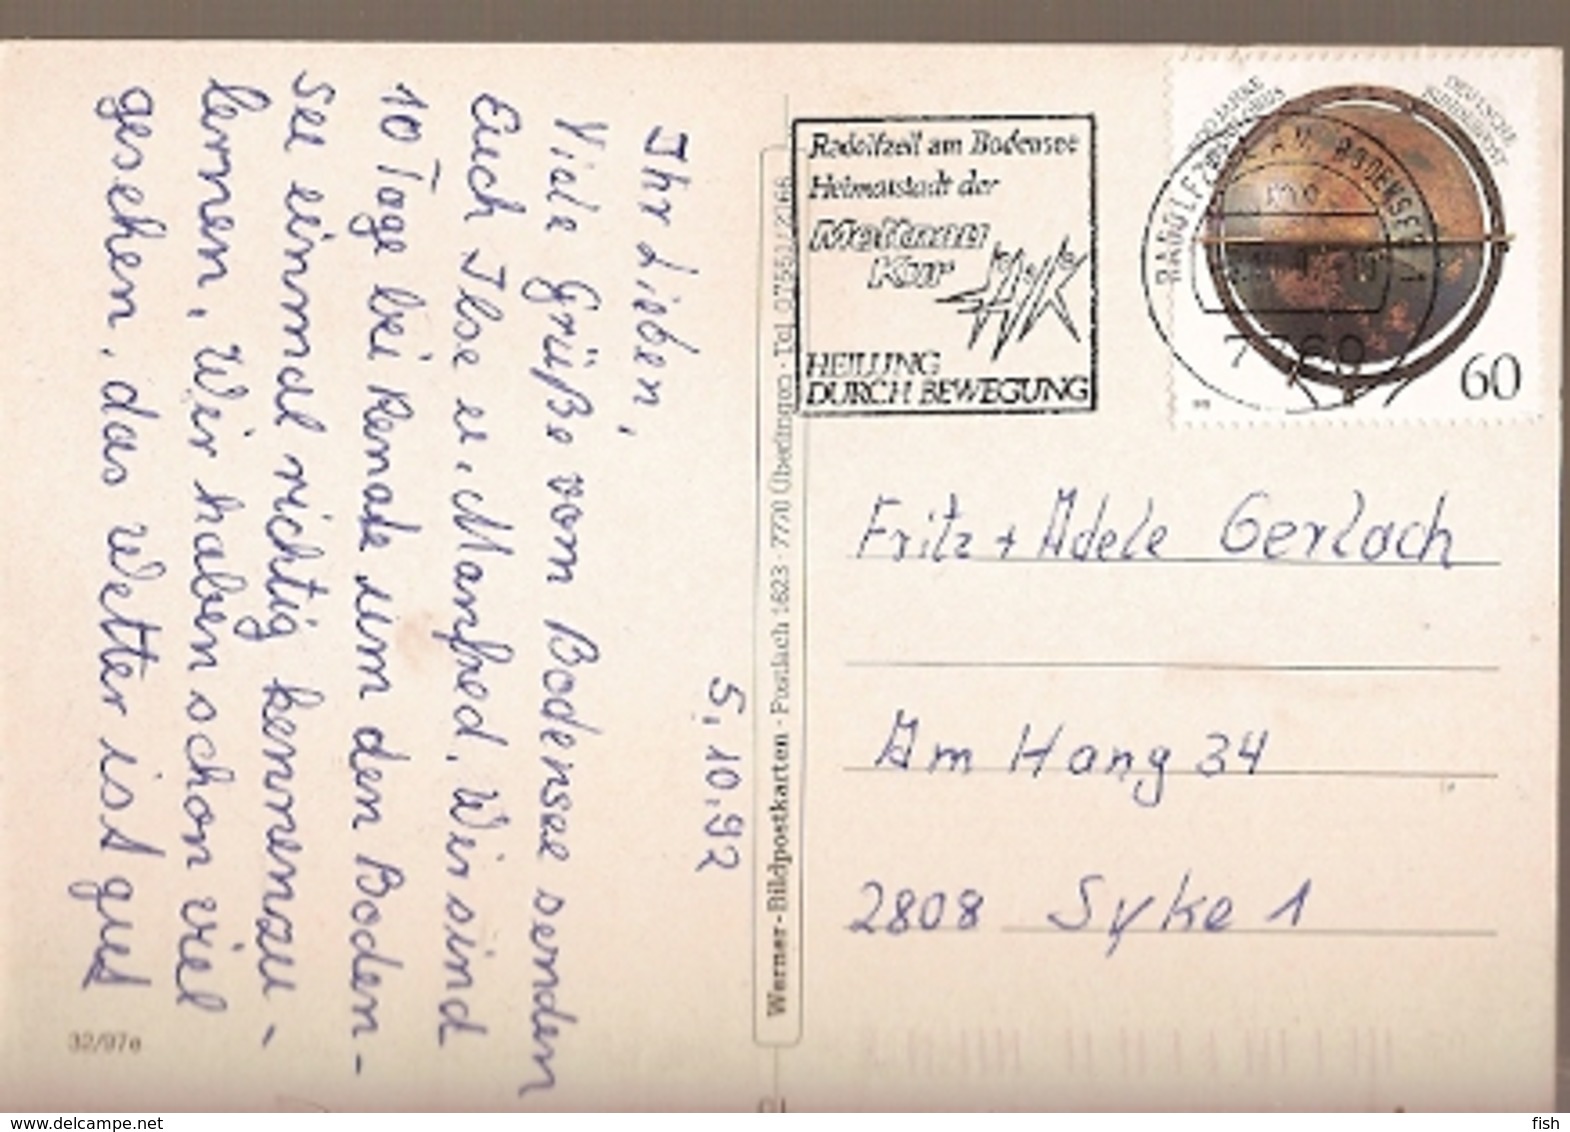 5.10.92
Ihr Lieben,
Viele Grüße vom Bodensee senden
Euch Ilse u. Manfred. Wir sind
10 Tage bei Renate um den Boden-
see einmal richtig kennenzu-
lernen. Wir haben schon viel
gesehen, das Wetter ist gut
32/97e
Werner-Bildpostkarten · Postfach 1623 · 7770 Überlingen · Tel. 07551/2166
Radolfzell am Bodensee
Heimatstadt der
Mettnau
Kur
HEILUNG
DURCH BEWEGUNG
RADOLFZELL AM BODENSEE 1
7760
DEUTSCHE
BUNDESPOST
60
Fritz + Adele Gerlach
Am Hang 34
2808 Syke 1
www.delcampe.net
fish